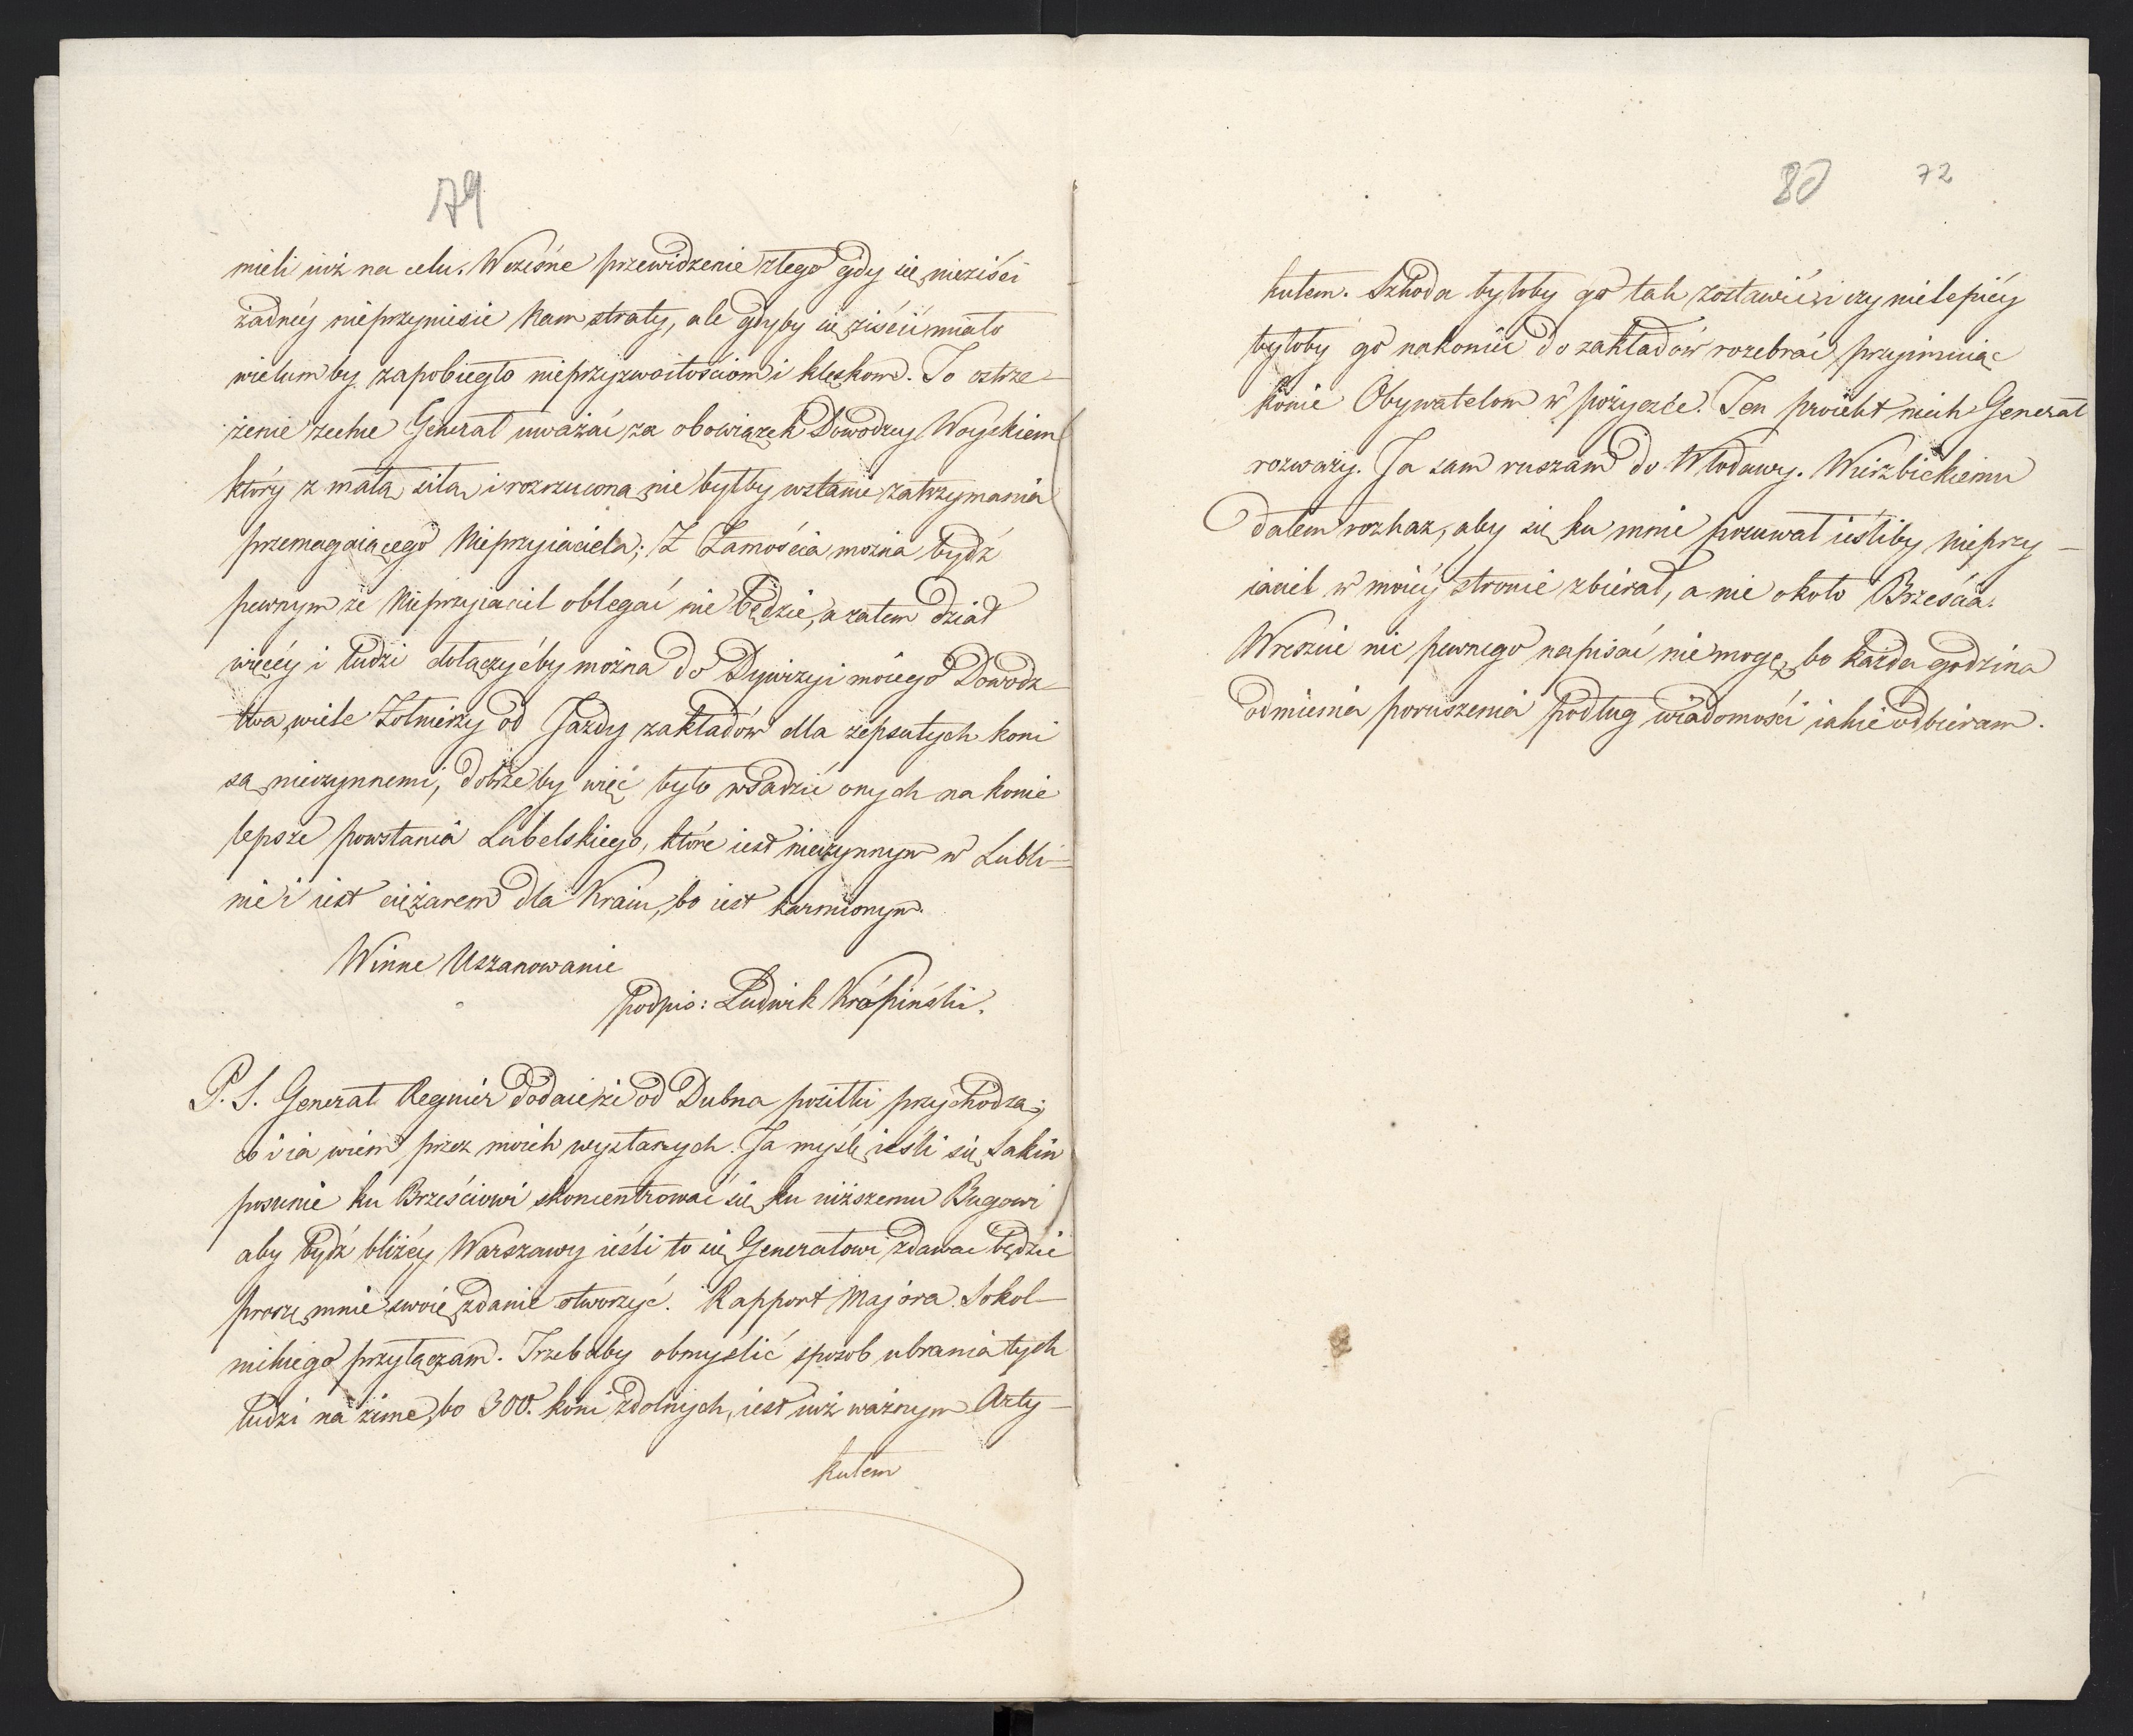 79
mieli iuż na celu. Wcześne przewidzenie złego gdy się nieziści
żadnéy nieprzyniesie Nam straty, ale gdyby się ziścić miało
wielum by zapobiegło nieprzyzwoitościom i klęskom. To ostrze-
żenie zechce Generał uważać za obowiązek Dowodzcy Woyskiem
który z małą siłą i rozrzuconą nie byłby wstanie zatrzymania
przemagaiącego Nieprzyiaciela; Z Zamościa można bydź
pewnym że Nieprzyiaciel oblegać nie będzie, a zatem dział
więcéy i ludzi dołączyćby można do Dywizyi moiego Dowodz-
twa, wiele Żołnierzy od Jazdy zakładów dla zepsutych koni
są nieczynnemi, dobrze by więc było wsadzić onych na konie
lepsze powstania Lubelskiego, które iest nieczynnym w Lubli-
nie i iest ciężarem dla Kraiu, bo iest karmionym.
Winne Uszanowanie
Podpis: Ludwik Kropiński.
P. S. Generał Regnier dodaie że od Dubna posiłki przychodzą;
co i ia wiem przez moich wysłanych. Ja myślę ieśli się Sakin
posunie ku Brześciowi skoncentrować się ku niższemu Bugowi
aby bydź bliżéy Warszawy ieśli to się Generałowi zdawać będzie
proszę mnie swoie zdanie otworzyć. Rapport Majora Sokol-
nikiego przyłączam. Trzebaby obmyślić sposob ubrania tych
ludzi na zimę, bo 300. koni zdolnych, iest iuż ważnym Arty-
kułem
80 72
kułem. Szkoda byłoby go tak zostawić, i czy nielepiéy
byłoby go nakoniec do zakładów rozebrać przyimuiąc
konie Obywatelom w pożyczce. Ten proiekt niech Generał
rozważy. Ja sam ruszam do Włodawy. Wierzbickiemu
dałem rozkaz, aby się ku mnie posuwał ieśliby nieprzy-
iaciel w moiéy stronie zbierał, a nie około Brześcia.
Wreszcie nic pewnego napisać niemogę, bo każda godzina
odmienia poruszenia podług wiadomości iakie odbieram.